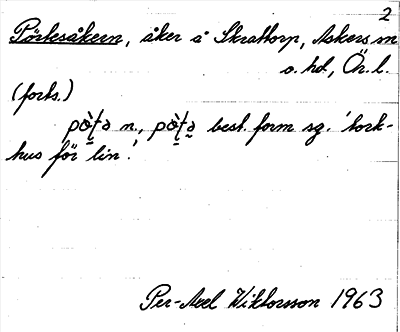 2
Pörtesåkern, åker å Skrattorp, Askers sn
o. hd, Ör. l.
(forts.)
n., best. form sg. 'tork-
hus för lin.'
Per-Axel Wiktorsson 1963